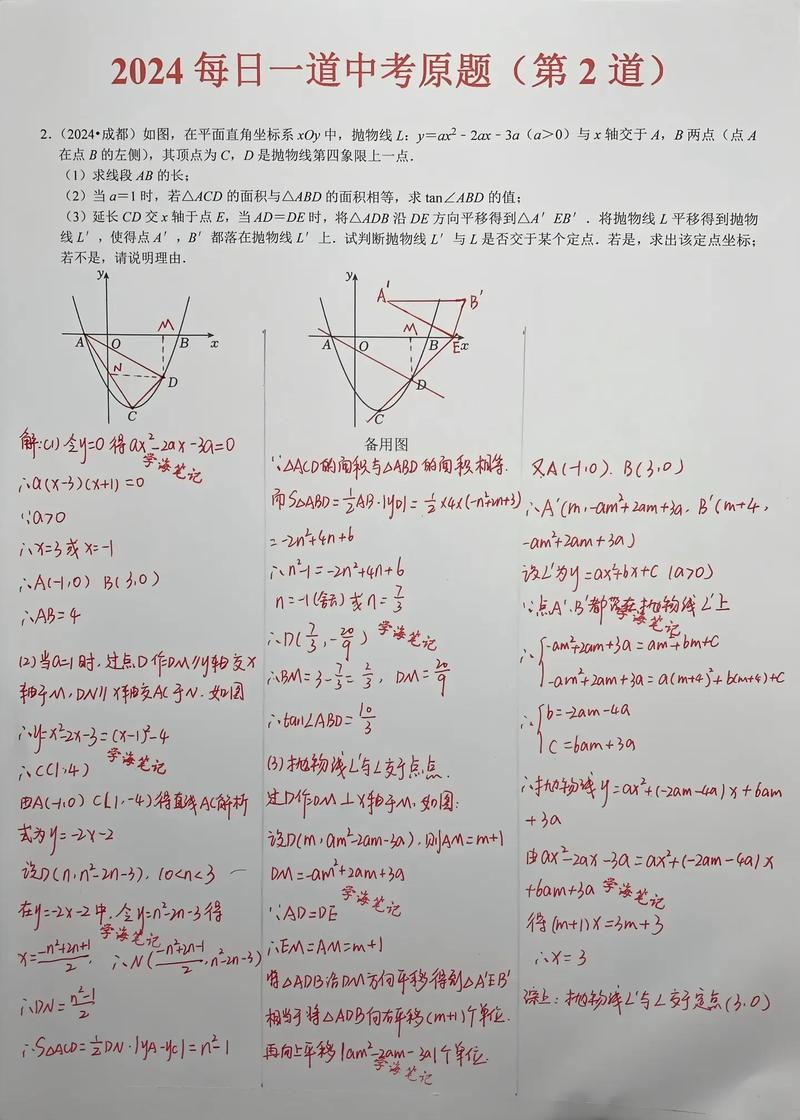 2024 每日一道中考原题（第 2 道）
2．（2024•成都）如图，在平面直角坐标系 xOy 中，抛物线 L：y＝ax²﹣2ax﹣3a（a＞0）与 x 轴交于 A，B 两点（点 A
在点 B 的左侧），其顶点为 C，D 是抛物线第四象限上一点．
（1）求线段 AB 的长；
（2）当 a＝1 时，若△ACD 的面积与△ABD 的面积相等，求 tan∠ABD 的值；
（3）延长 CD 交 x 轴于点 E，当 AD＝DE 时，将△ADB 沿 DE 方向平移得到△A′EB′．将抛物线 L 平移得到抛物
线 L′，使得点 A′，B′都落在抛物线 L′上．试判断抛物线 L′与 L 是否交于某个定点．若是，求出该定点坐标；
若不是，请说明理由．
y
M
A
O
B
x
N
D
C
y
A'
B'
M
A
O
B
E
x
D
C
备用图
解:(1) 令y=0 得ax²-2ax-3a=0
学海笔记
∴a(x-3)(x+1)=0
∵a>0
∴x=3或x=-1
∴A(-1,0) B(3,0)
∴AB=4
(2)当a=1时,过点D作DM∥y轴交x
轴于M,DN∥x轴交AC于N.如图
∴y=x²-2x-3=(x-1)²-4
学海笔记
∴C(1,-4)
由A(-1,0) C(1,-4)得直线AC解析
式为y=-2x-2
设D(n,n²-2n-3),(0<n<3
在y=-2x-2中,令y=n²-2n-3得
学海笔记
x=\frac{-n²+2n+1}{2}, ∴N(\frac{-n²+2n+1}{2},n²-2n-3)
∴DN=\frac{n²-1}{2}
∴S△ACD=\frac{1}{2}DN·|yA-yC|=n²-1
∵△ACD的面积与△ABD的面积相等.
而S△ABD=\frac{1}{2}AB·|yD|=\frac{1}{2}×4×(-n²+2n+3)
=-2n²+4n+6
∴n²-1=-2n²+4n+6
n=-1(舍去)或n=\frac{7}{3}
∴D(\frac{7}{3},-\frac{20}{9})
学海笔记
∴BM=3-\frac{7}{3}=\frac{2}{3}, DM=\frac{20}{9}
∴tan∠ABD=\frac{10}{3}
(3)抛物线L'与L交于定点.
过D作DM⊥x轴于M,如图:
设D(m,am²-2am-3a),则AM=m+1
DM=-am²+2am+3a
学海笔记
∵AD=DE
∴EM=AM=m+1
将△ADB沿DM方向平移得到△A'EB'
相当于将△ADB向右平移(m+1)个单位.
再向上平移|am²-2am-3a|个单位.
学海笔记
又A(-1,0). B(3,0)
∴A'(m,-am²+2am+3a, B'(m+4,
-am²+2am+3a)
设L'为y=ax²+bx+c (a>0)
∵点A'.B'都落在抛物线L'上
学海笔记
∴{-am²+2am+3a=am²+bm+c
-am²+2am+3a=a(m+4)²+b(m+4)+c
∴{b=-2am-4a
c=6am+3a
∴抛物线y=ax²+(-2am-4a)x+6am
+3a
由ax²-2ax-3a=ax²+(-2am-4a)x
+6am+3a
学海笔记
得(m+1)x=3m+3
∴x=3
综上:抛物线L'与L交于定点(3,0)